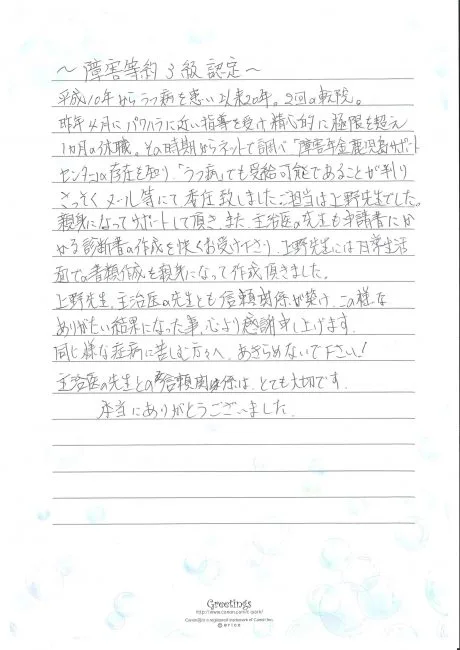 ～障害等約3級認定～
平成10年からうつ病を患い以来20年。2回の転院。
昨年4月にパワハラに近い指導を受け精心的に極限を超え
1カ月の休職。その時期からネットで調べ「障害年金鹿児島サポート
センター」の存在を知り、「うつ病」でも受給可能であることが判り
さっそくメール等にて委任致しました。ご担当は上野先生でした。
親身になってサポートして頂き、また、主治医の先生も申請書にか
かる診断書の作成を快くお受け下さり、上野先生には日常生活
面での書類作成も親身になって作成頂きました。
上野先生、主治医の先生とも信頼関係が築け、この様な
ありがたい結果になった事、心より感謝申し上げます。
同じ様な症病に苦しむ方々へ、あきらめないで下さい！
主治医の先生との信頼関係は、とても大切です。
本当にありがとうございました。
Greetings
http://www.canon.com/c-park/
Canon is a registered trademark of Canon Inc.